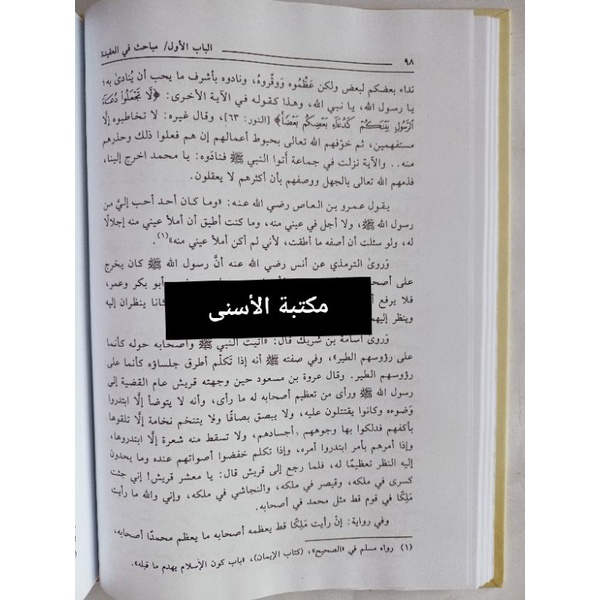 ٩٨ الباب الأول/ مباحث في العقيدة
نداء بعضكم لبعض ولكن عظّموه ووقّروهُ، ونادوه بأشرف ما يحب أن يُنادىٰ به؛
يا رسول الله، يا نبي الله، وهذا كقوله في الآية الأخرى: ﴿لَّا تَجْعَلُوا دُعَاءَ
الرَّسُولِ بَيْنَكُمْ كَدُعَاءِ بَعْضِكُم بَعْضًا﴾ [النور: ٦٣]، وقال غيره: لا تخاطبوه إلَّا
مستفهمين، ثم خوّفهم الله تعالى بحبوط أعمالهم إن هم فعلوا ذلك وحذرهم
منه.. والآية نزلت في جماعة أتوا النبي ﷺ فنادَوه: يا محمد اخرج إلينا،
فذمهم الله تعالى بالجهل ووصفهم بأن أكثرهم لا يعقلون.
يقول عمرو بن العاص رضي الله عنه: «وما كان أحد أحب إليَّ من
رسول الله ﷺ، ولا أجل في عيني منه، وما كنت أطيق أن أملأ عيني منه إجلالًا
له، ولو سئلت أن أصفه ما أطقت، لأني لم أكن أملأ عيني منه»(١).
ورَوىٰ الترمذي عن أنس رضي الله عنه أنَّ رسول الله ﷺ كان يخرج
على أصحا أبو بكر وعمر،
فلا يرفع كانا ينظران إليه
وينظر إليهم
مكتبة الأسنى
ورَوىٰ أسامة بن شريك قال: «أتيت النبي ﷺ وأصحابه حوله كأنما
على رؤوسهم الطير»، وفي صفته ﷺ أنه إذا تكلّم أطرق جلساؤه كأنما على
رؤوسهم الطير. وقال عروة بن مسعود حين وجهته قريش عام القضية إلى
رسول الله ﷺ ورأى من تعظيم أصحابه له ما رأى، وأنه لا يتوضأ إلَّا ابتدروا
وَضوءه وكانوا يقتتلون عليه، ولا يبصق بصاقًا ولا يتنخم نخامة إلَّا تلقوها
بأكفهم فدلكوا بها وجوههم وأجسادهم، ولا تسقط منه شعرة إلَّا ابتدروها،
وإذا أمرهم بأمر ابتدروا أمره، وإذا تكلم خفضوا أصواتهم عنده وما يحدون
إليه النظر تعظيمًا له، فلما رجع إلى قريش قال: يا معشر قريش! إني جئت
كسرى في ملكه، وقيصر في ملكه، والنجاشي في ملكه، وإني والله ما رأيت
مَلِكًا في قوم قط مثل محمد في أصحابه.
وفي رواية: إنْ رأيت مَلِكًا قط يعظمه أصحابه ما يعظم محمدًا أصحابه،
(١) رواه مسلم في «الصحيح»، (كتاب الإيمان)، «باب كون الإسلام يهدم ما قبله».